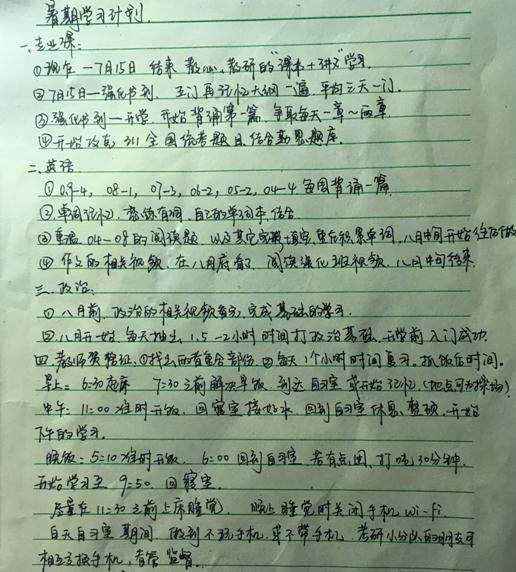 暑期学习计划
一、专业课:
①现在—7月15日 结束 教心、教研的"课本+讲义"学习.
②7月15日—强化书到 五门再记忆大纲一遍 平均三天一门.
③强化书到—开学 开始背诵第一篇 争取每天一章~两章
④开始攻克 311 全国统考题目,结合勤思题库.
二、英语
①09-4, 08-1, 07-3, 06-2, 05-2, 04-4 每周背诵一篇
②单词记忆. 恋练有词、自己的单词本,结合
③重温 04-08的阅读题 以及其它完型填空,重在积累单词,八月中旬开始
④作文的相关视频,在八月底看了 阅读强化班视频 八月中旬结束.
三、政治:
①八月前,政治的相关视频看完,完成基础的学习.
②八月开始 每天抽出 1.5-2小时 时间打政治基础,开学前入门成功.
四、教师资格证:①找出两者重合部份 ②每天1个小时时间复习,抓饭后时间.
早上:6:30起床 7:30之前解决早饭,到达自习室 或开始记忆(地点可为操场)
中午:11:00准时开饭,回寝室接好水 回到自习室休息、整顿、开始
下午的学习.
晚饭:5:10准时开饭. 6:00回到自习室 若有点困,打盹30分钟.
开始学习至 9:50. 回寝室.
尽量在11:30之前上床睡觉. 晚上睡觉时关闭手机 Wi-Fi
白天自习室期间 做到不玩手机,或不带手机,考研小分队的朋友可
相互交换手机,看管 监督.